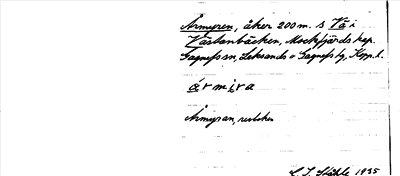 Armyren, åker 200 m. S Vå i
Västanbäcken, Mockfjärds kap.
Gagnefs sn, Leksands o Gagnefs tg, Kopp. l.
ármira
Armyran, 
C. I. Ståhle 1935